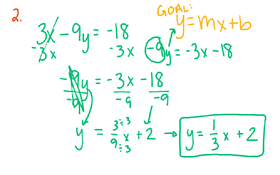 2.
GOAL:
y=mx+b
3x-9y=-18
-3x -3x
-9y=-3x-18
-9y = -3x -18
-9 -9 -9
y = 3÷3/9÷3 x + 2 → y = 1/3 x + 2